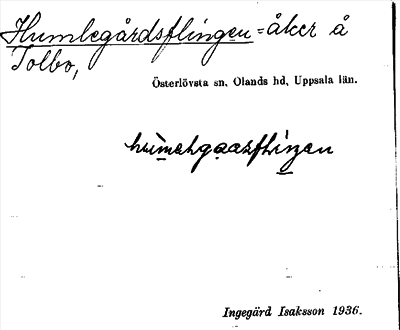 Humlegårdsflingen = åker å
Tolbo,
Österlövsta sn, Olands hd, Uppsala län.
Ingegärd Isaksson 1936.